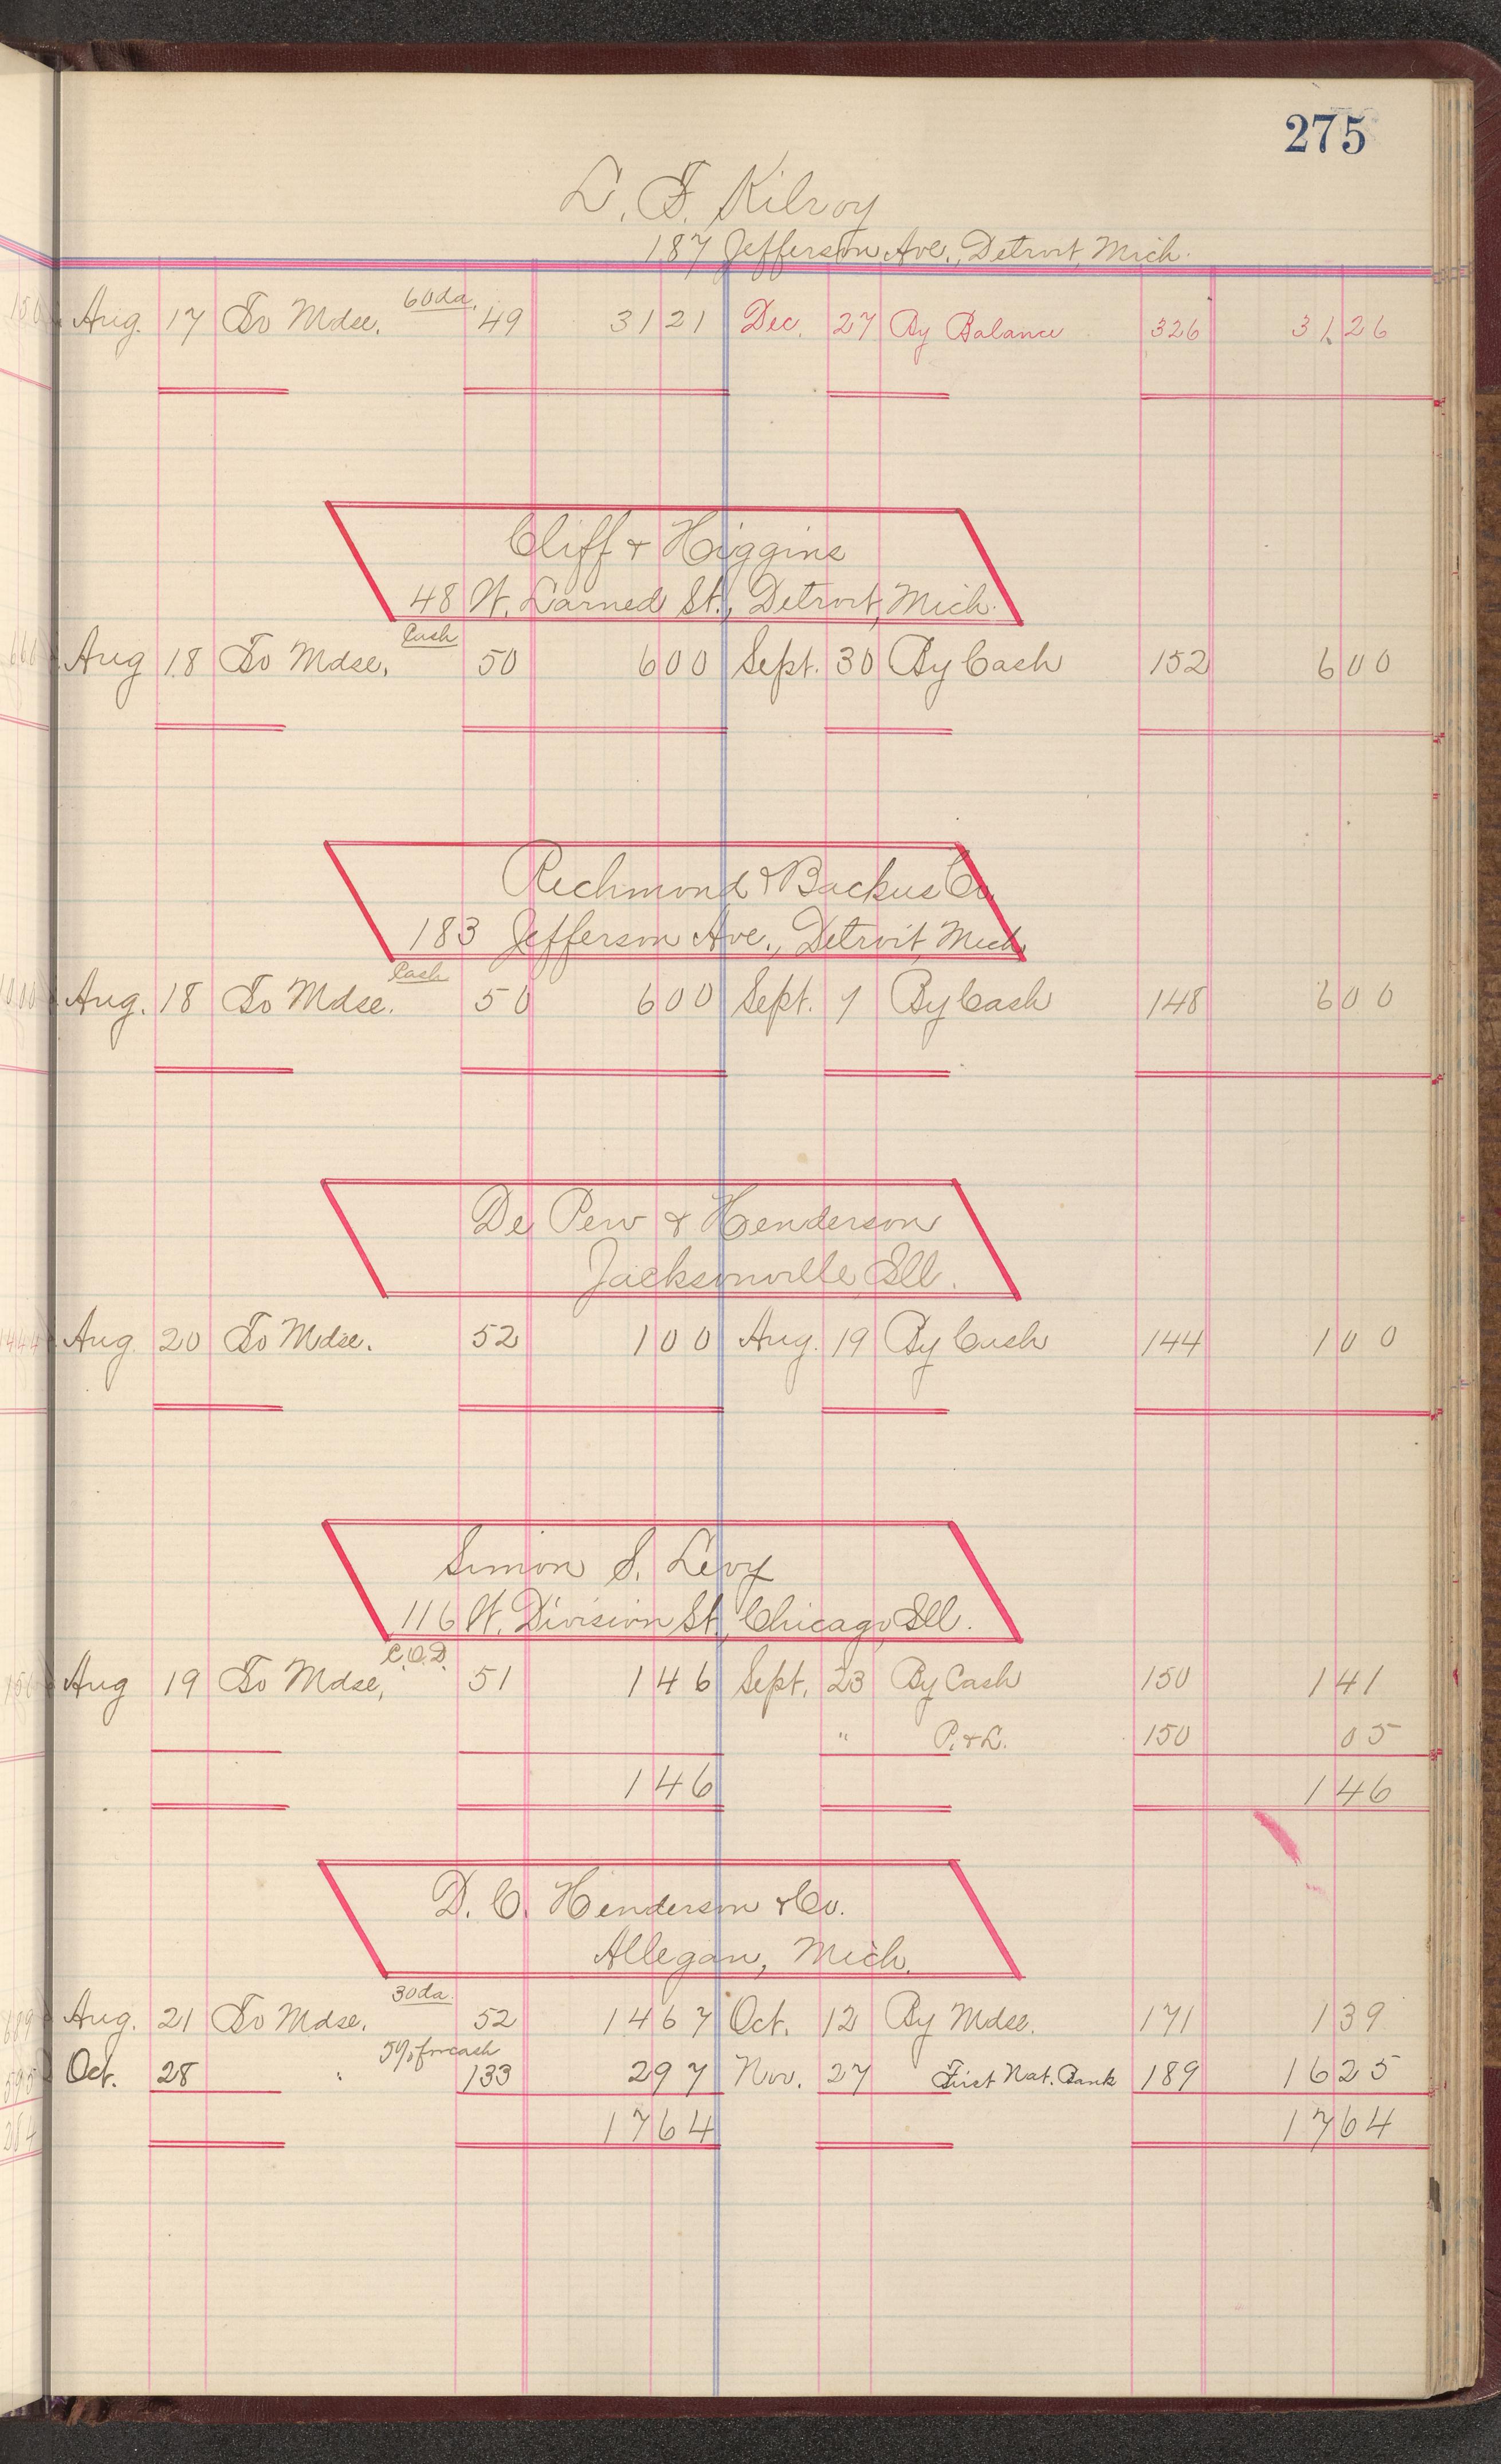 275
L. F. Kilroy
187 Jefferson Ave., Detroit, Mich.
60 da.
Aug. 17 To Mdse. 49 31 21 Dec. 27 By Balance 326 31.26
Cliff & Higgins
48 W. Larned St., Detroit, Mich.
Cash
Aug 18 To Mdse. 50 6 00 Sept. 30 By Cash 152 6 00
Richmond & Backus Co.
183 Jefferson Ave., Detroit, Mich.
Cash
Aug. 18 To Mdse. 50 6 00 Sept. 7 By Cash 148 6 00
De Pew & Henderson
Jacksonville, Ill.
Aug. 20 To Mdse. 52 1 00 Aug. 19 By Cash 144 1 00
Simon S. Levy
116 W. Division St., Chicago, Ill.
C.O.D.
Aug 19 To Mdse, 51 1 46 Sept. 23 By Cash 150 1 41
" P. & L. 150 05
1 46 1 46
D. C. Henderson & Co.
Allegan, Mich.
30 da.
Aug. 21 To Mdse. 52 14 67 Oct. 12 By Mdse. 171 1 39
5% for cash
Oct. 28 " 133 2 97 Nov. 27 First Nat. Bank 189 16 25
17 64 17 64